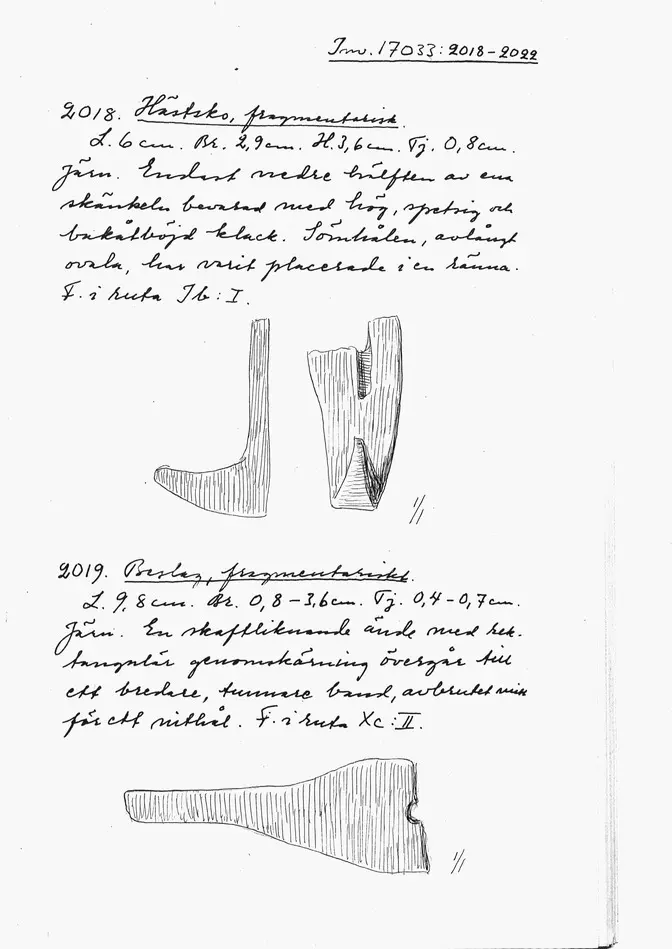 Inv. 17033: 2018-2022
2018. Hästsko, fragmentarisk.
L. 6 cm. Br. 2,9 cm. H. 3,6 cm. Tj. 0,8 cm.
Järn. Endast nedre hälften av ena
skänkeln bevarad med hög, spetsig och
bakåtböjd klack. Sömhålen, avlångt
ovala, har varit placerade i en ränna.
F. i ruta Ib: I.
1/1
2019. Beslag, fragmentariskt.
L. 9,8 cm. Br. 0,8-3,6 cm. Tj. 0,4-0,7 cm.
Järn. En skaftliknande ände med rek-
tangulär genomskärning övergår till
ett bredare, tunnare band, avbrutet mitt
för ett nithål. F. i ruta Xc: II.
1/1